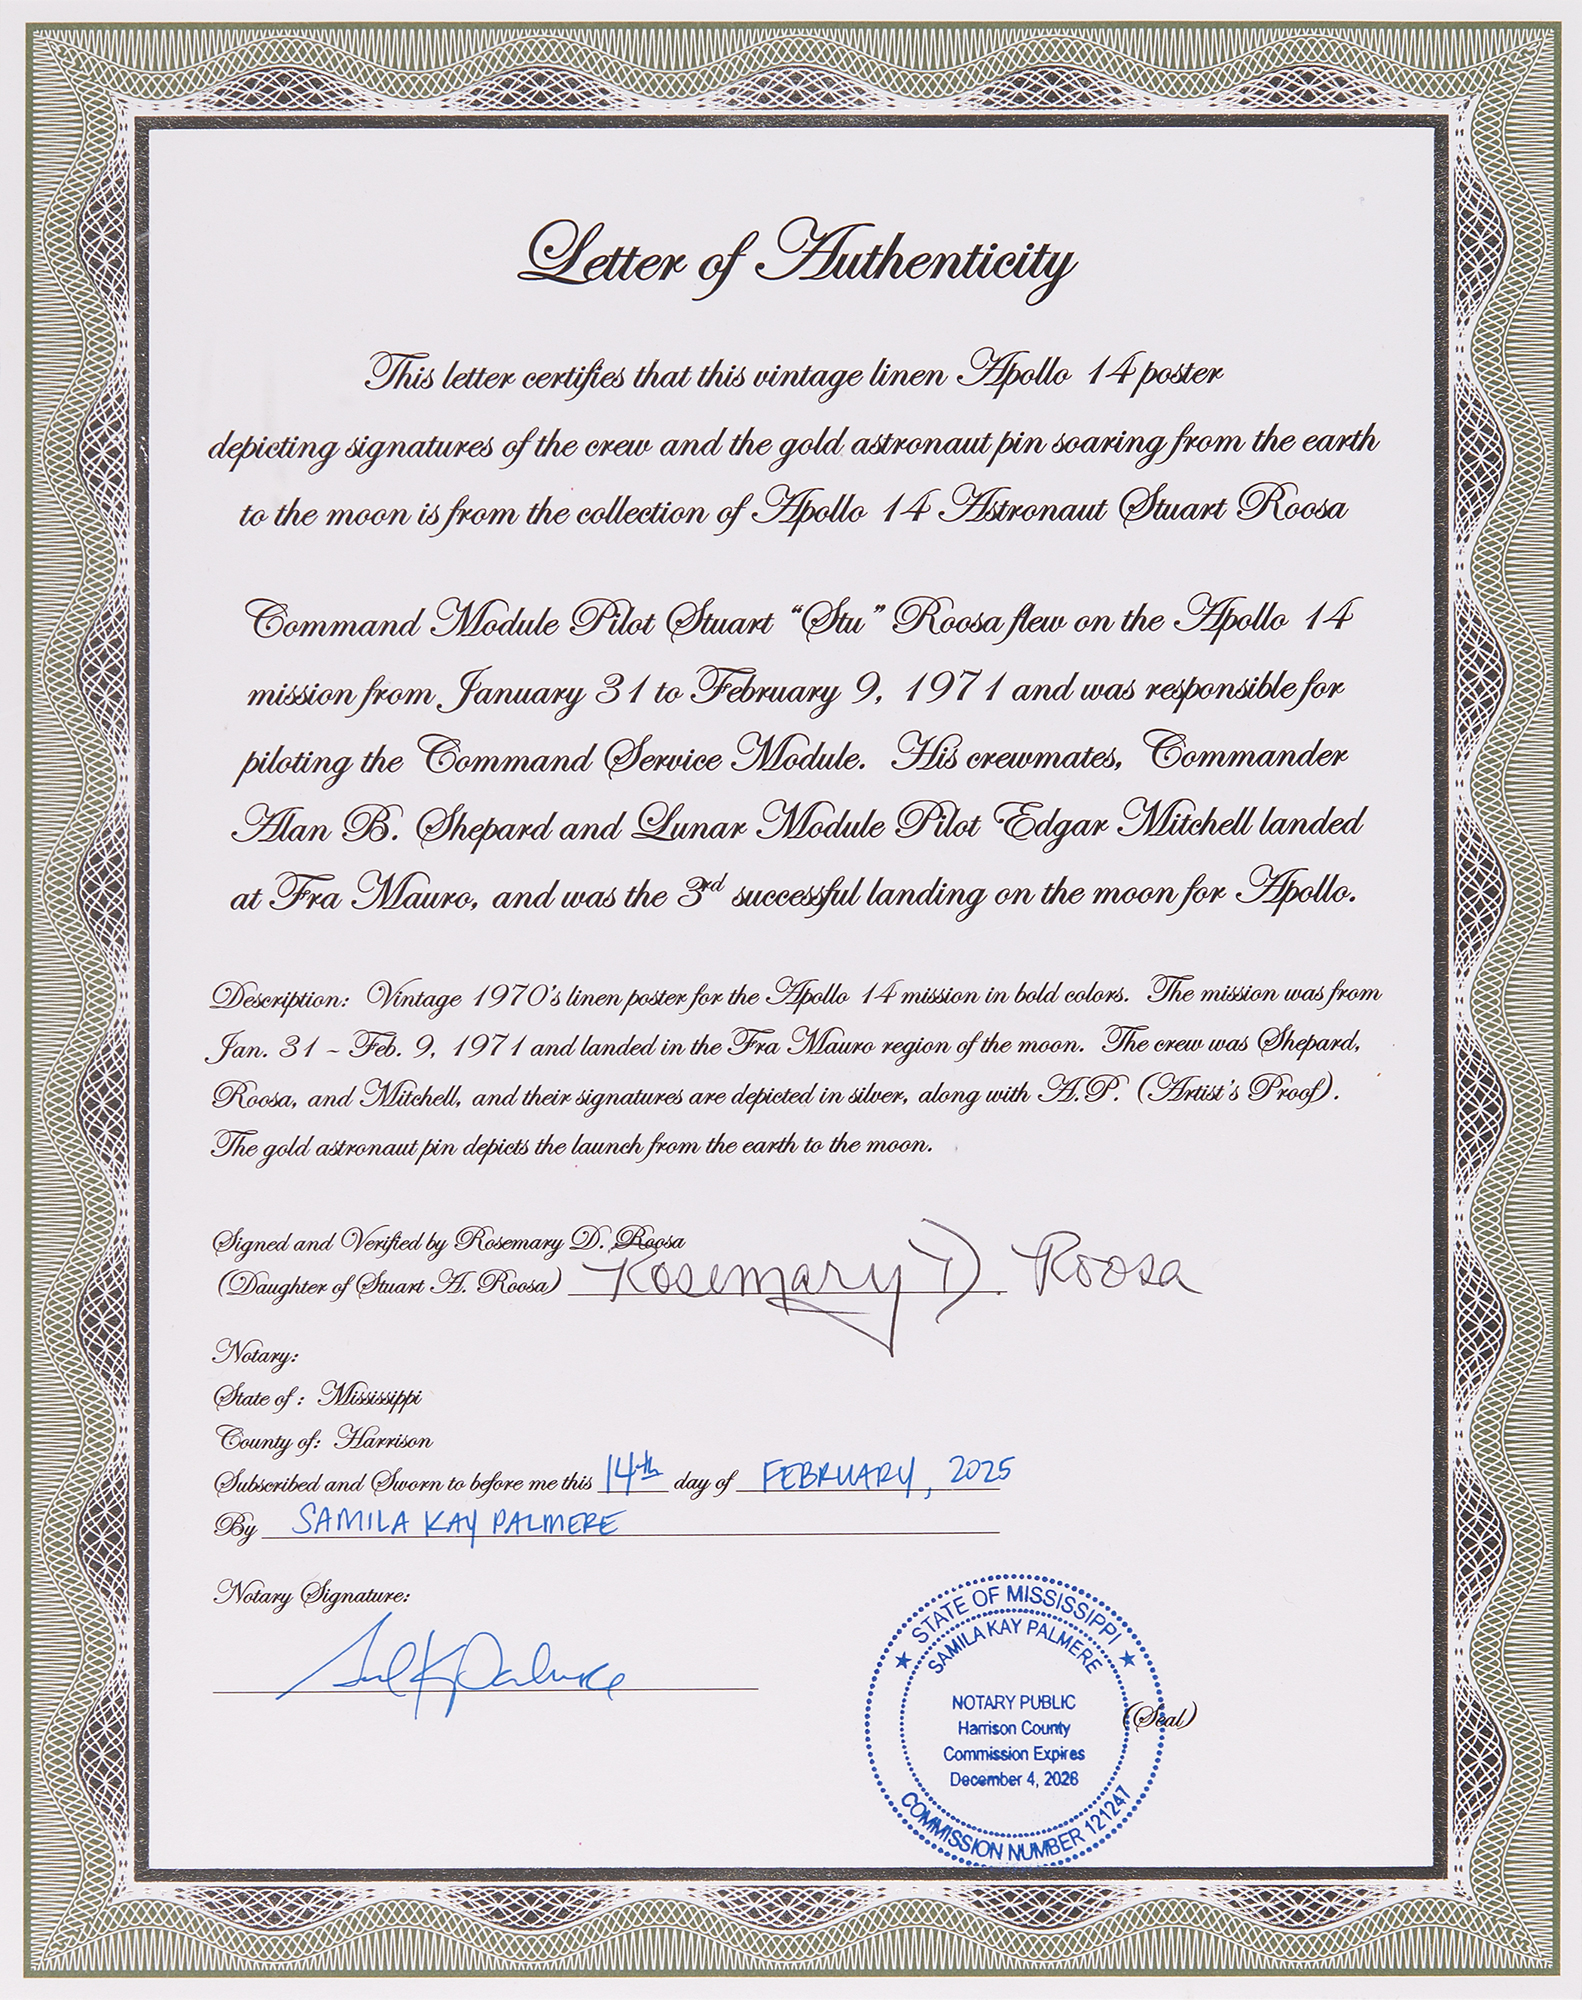 Letter of Authenticity
This letter certifies that this vintage linen Apollo 14 poster
depicting signatures of the crew and the gold astronaut pin soaring from the earth
to the moon is from the collection of Apollo 14 Astronaut Stuart Roosa
Command Module Pilot Stuart “Stu” Roosa flew on the Apollo 14
mission from January 31 to February 9, 1971 and was responsible for
piloting the Command Service Module. His crewmates, Commander
Alan B. Shepard and Lunar Module Pilot Edgar Mitchell landed
at Fra Mauro, and was the 3rd successful landing on the moon for Apollo.
Description: Vintage 1970's linen poster for the Apollo 14 mission in bold colors. The mission was from
Jan. 31 ~ Feb. 9, 1971 and landed in the Fra Mauro region of the moon. The crew was Shepard,
Roosa, and Mitchell, and their signatures are depicted in silver, along with A.P. (Artist's Proof).
The gold astronaut pin depicts the launch from the earth to the moon.
Signed and Verified by Rosemary D. Roosa
(Daughter of Stuart A. Roosa) Rosemary D. Roosa
Notary:
State of: Mississippi
County of: Harrison
Subscribed and Sworn to before me this 14th day of FEBRUARY, 2025
By SAMILA KAY PALMERE
Notary Signature:
STATE OF MISSISSIPPI
SAMILA KAY PALMERE
NOTARY PUBLIC
Harrison County
Commission Expires
December 4, 2026
COMMISSION NUMBER 121247
(Seal)